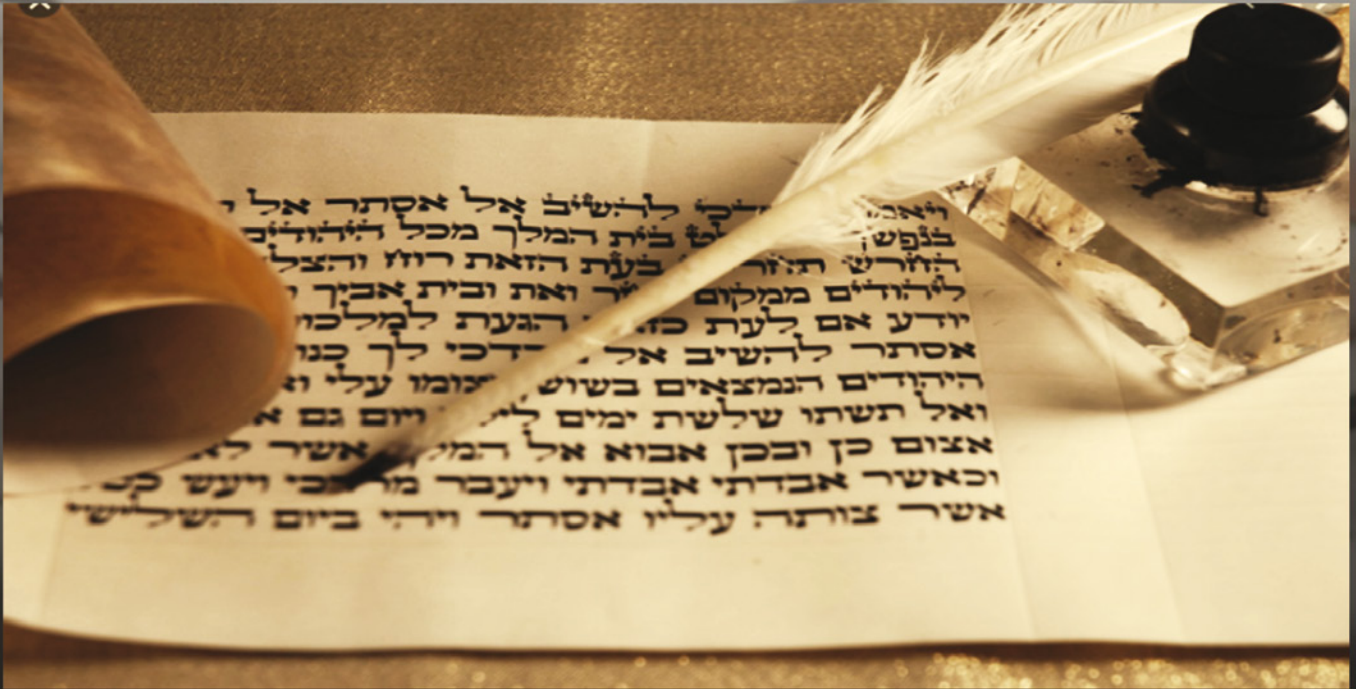 להשיב אל אסתר אל
בית המלך מכל היהודים
בעת הזאת רוח והצל
ליהודים ממקום ואת ובית אביך
יודע אם לעת הגעת למלכו
אסתר להשיב אל לך כנו
היהודים הנמצאים בשוש וצומו עלי וא
ואל תשתו שלשת ימים ויום גם א
אצום כן ובכן אבוא אל המל אשר לא
וכאשר אבדתי אבדתי ויעבר ויעש
אשר צותה עליו אסתר ויהי ביום השלישי